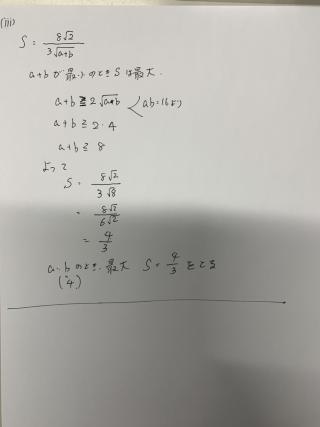 (iii)
S = 8√2 / 3√(a+b)
a+b が最小のとき S は最大.
a+b ≧ 2√(a・b) ab=16より
a+b ≧ 2・4
a+b ≧ 8
よって
S = 8√2 / 3√8
= 8√2 / 6√2
= 4/3
a=bのとき、最大 S=4/3 をとる
(=4)